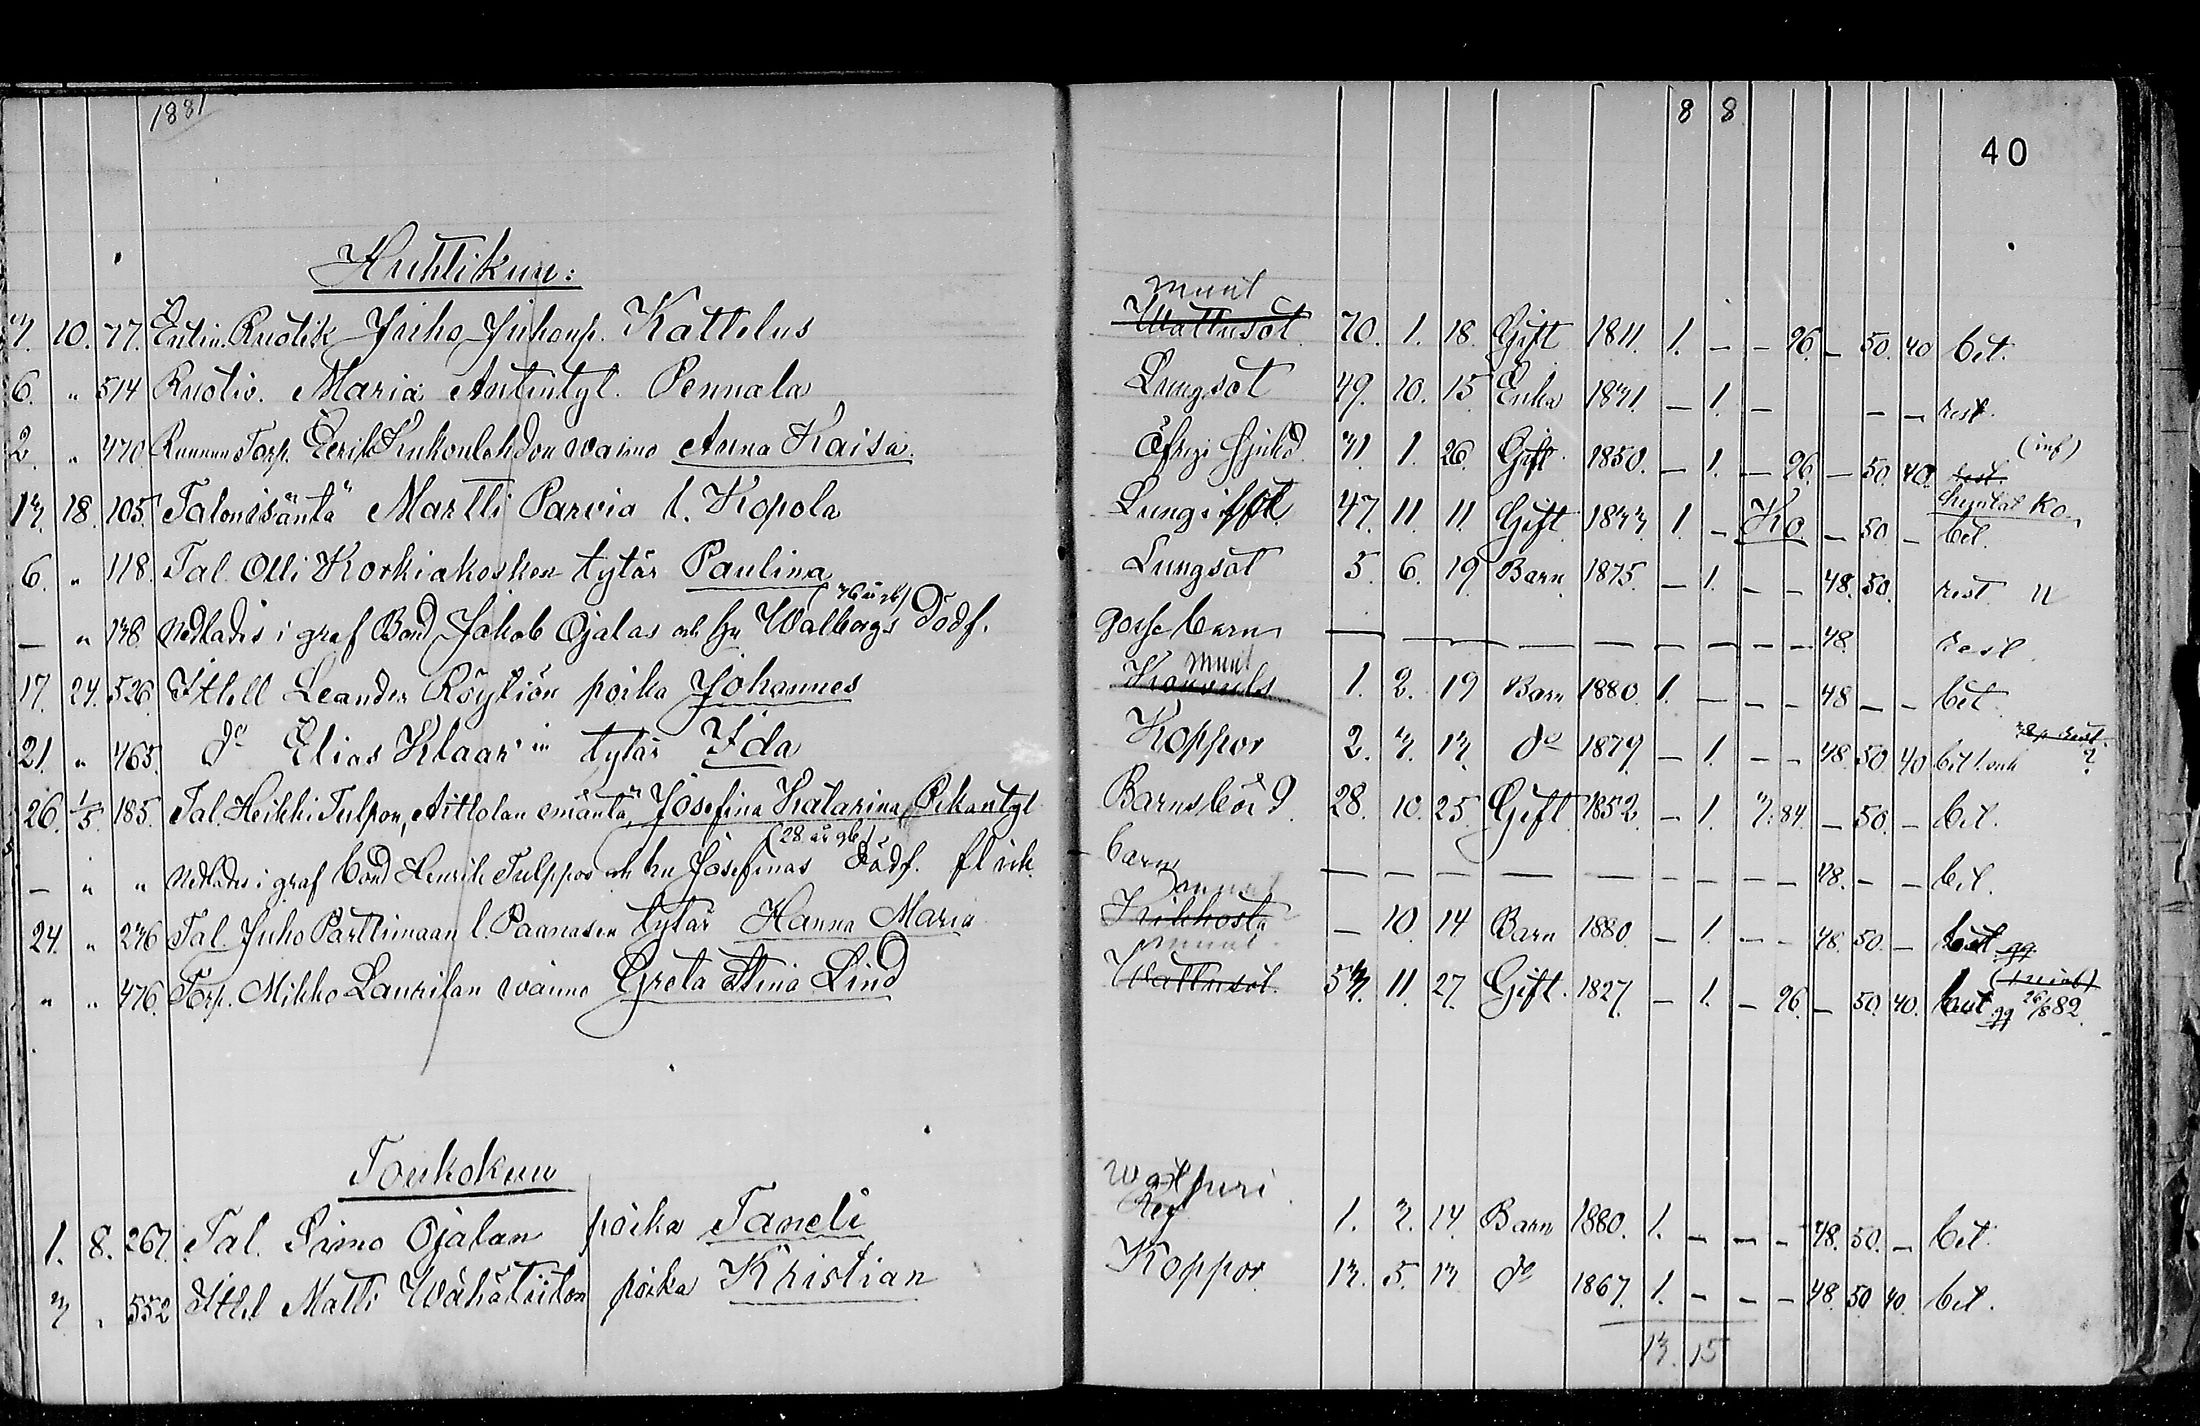 1881 8 8
40
Huhtikuu:
muut
3. 10. 77. Entin. Ruotik Juho Juhonp. Kattelus Wattusot. 70. 1. 18. Gift 1811. 1. — — 96. — 50. 40 bet.
6. " 514 Ruotiv. Maria Antintyt. Pennala Lungsot 49. 10. 15 Enka 1831. — 1. — — — rest.
2. " 470. Torp. Eerik Kukonlehdon waimo Anna Kaisa. hjukd 31 1. 26. Gift. 1850. — 1. — 96. — 50. 40. rest. (inf)
13. 18. 105. Talonisäntä Martti Parvia l. Kopola Lungsot 47. 11. 11 Gift 1833. 1. — Ko. — 50 — bet. Ko
6. " 118. Tal. Olli Korkiakosken tytär Paulina Lungsot 5. 6. 19. Barn 1875. — 1. — — 48. 50. rest.
— " 138. Nedlades i graf Bond Jakob Ojalas och hu Walborgs (36 år gb) Dödf. gosse barn — — — — — — — — — 48. rest.
muut
17. 24. 526. Itsell Leander Röykiön poika Johannes 1. 2. 19 Barn 1880. 1. — — — 48 — — bet.
21. " 465. do Elias Klaar'in tytär Ida Koppor 2. 3. 13. do 1879. — 1. — — 48. 50. 40 bet
26. 1/5. 185. Tal. Heikki Tulpon, Aittolan emäntä, Josefina Katarina Pekantyt. Barnsbörd. 28. 10. 25. Gift. 1852. — 1. 3:84. — 50. — bet.
— " " Nedlades i graf bond Henrik Tulppos och hu Josefinas (28 år gb) Dödf. flick barn — — — — — — — — — 48. — — bet.
24. " 236 Tal. Juho Parttimaan l. Paanasen tytär Hanna Maria — 10. 14 Barn 1880. — 1. — — 48. 50. —
muut
" " 476. Torp. Mikko Laurilan waimo Greta Stina Lind Wattusot. 53. 11. 27. Gift. 1827. — 1. — 96. — 50. 40. 26/8 82.
Toukokuu
Walpuri
1. 8. 267. Tal. Simo Ojalan poika Taneli 1. 2. 14. Barn 1880. 1. — — — 48. 50. — bet.
3 " 552 Itsel Matti Wähätiiton poika Kristian Koppor 13. 5. 13 do 1867. 1. — — — 48. 50. 40. bet.
13. 15